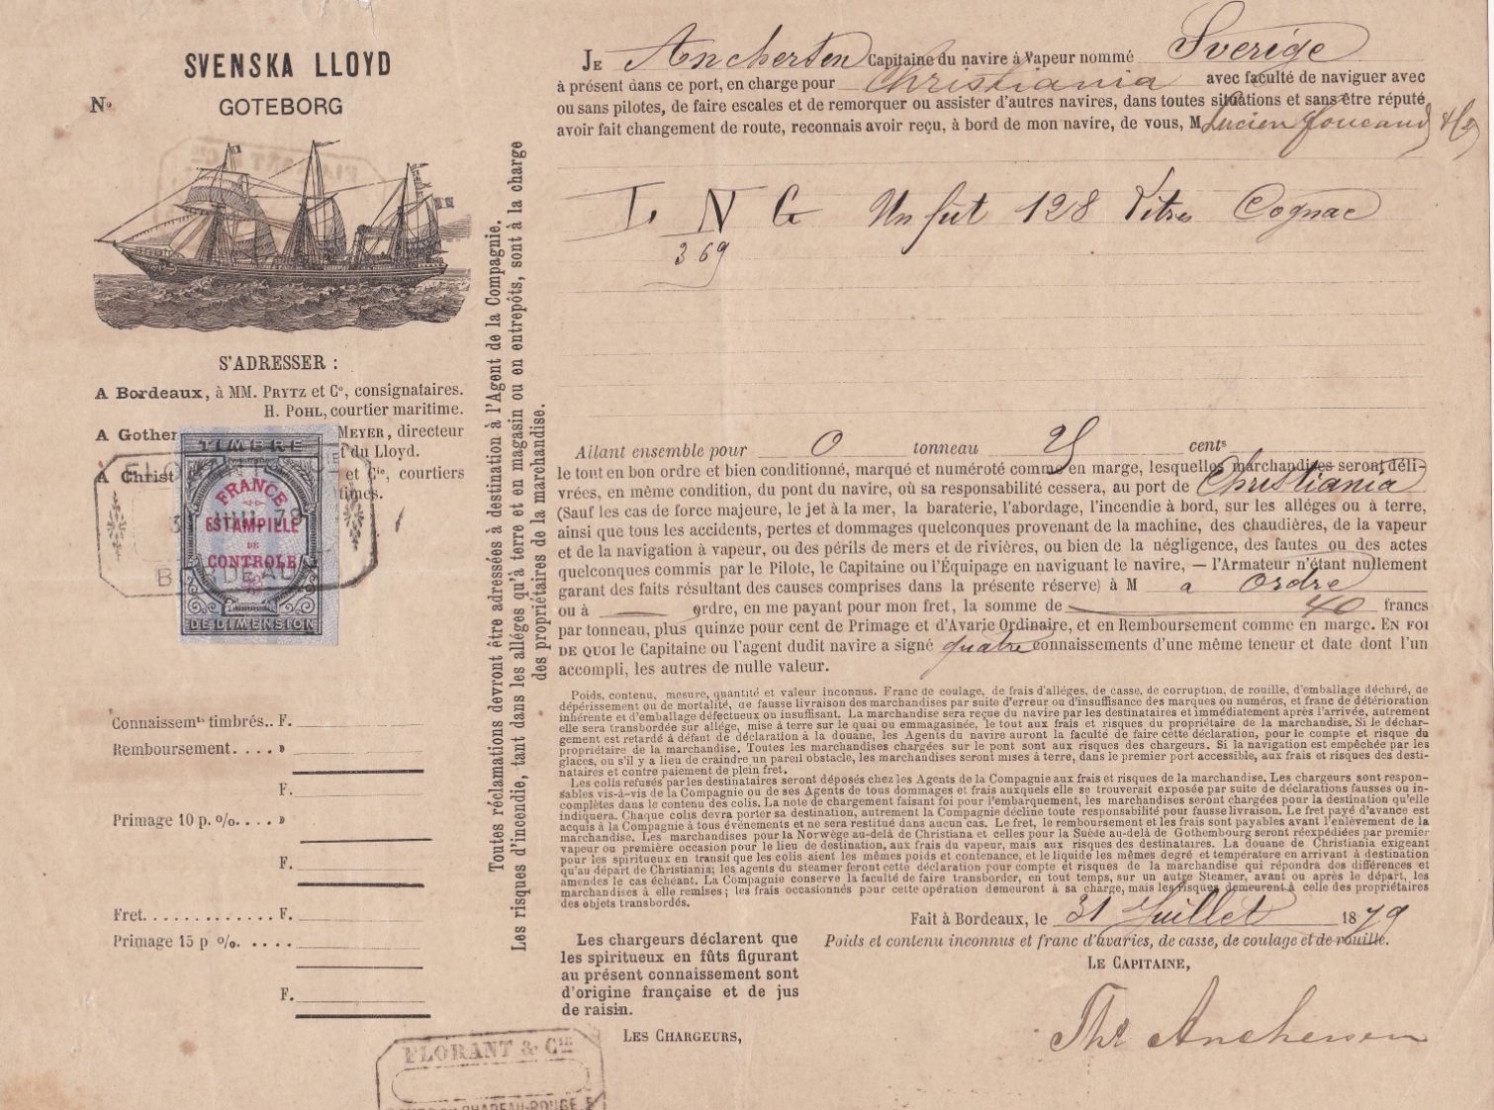 SVENSKA LLOYD
N°
GOTEBORG
S'ADRESSER :
A Bordeaux, à MM. PRYTZ et Cie, consignataires.
H. POHL, courtier maritime.
A Gother
MEYER, directeur
du Lloyd.
A Christ
et Cie, courtiers
TIMBRE
FRANCE
ESTAMPILLE
DE
CONTROLE
DE DIMENSION
Connaissemts timbrés.. F.
Remboursement.... »
F.
Primage 10 p. %.... »
F.
Fret............ F.
Primage 15 p %. ....
F.
Toutes réclamations devront être adressées à destination à l'Agent de la Compagnie.
Les risques d'incendie, tant dans les alléges qu'à terre et en magasin ou en entrepôts, sont à la charge
des propriétaires de la marchandise.
JE Anchersen Capitaine du navire à Vapeur nommé Sverige
à présent dans ce port, en charge pour Christiania avec faculté de naviguer avec
ou sans pilotes, de faire escales et de remorquer ou assister d'autres navires, dans toutes situations et sans être réputé
avoir fait changement de route, reconnais avoir reçu, à bord de mon navire, de vous, M Lucien Foucaud & Co
L N G Un fût 128 Litres Cognac
369
Allant ensemble pour 0 tonneau 25 cents
le tout en bon ordre et bien conditionné, marqué et numéroté comme en marge, lesquelles marchandises seront déli-
vrées, en même condition, du pont du navire, où sa responsabilité cessera, au port de Christiania
(Sauf les cas de force majeure, le jet à la mer, la baraterie, l'abordage, l'incendie à bord, sur les alléges ou à terre,
ainsi que tous les accidents, pertes et dommages quelconques provenant de la machine, des chaudières, de la vapeur
et de la navigation à vapeur, ou des périls de mers et de rivières, ou bien de la négligence, des fautes ou des actes
quelconques commis par le Pilote, le Capitaine ou l'Équipage en naviguant le navire, — l'Armateur n'étant nullement
garant des faits résultant des causes comprises dans la présente réserve) à M a ordre
ou à ordre, en me payant pour mon fret, la somme de 40 francs
par tonneau, plus quinze pour cent de Primage et d'Avarie Ordinaire, et en Remboursement comme en marge. EN FOI
DE QUOI le Capitaine ou l'agent dudit navire a signé quatre connaissements d'une même teneur et date dont l'un
accompli, les autres de nulle valeur.
Poids, contenu, mesure, quantité et valeur inconnus. Franc de coulage, de frais d'alléges, de casse, de corruption, de rouille, d'emballage déchiré, de
dépérissement ou de mortalité, de fausse livraison des marchandises par suite d'erreur ou d'insuffisance des marques ou numéros, et franc de détérioration
inhérente et d'emballage défectueux ou insuffisant. La marchandise sera reçue du navire par les destinataires et immédiatement après l'arrivée, autrement
elle sera transbordée sur allége, mise à terre sur le quai ou emmagasinée, le tout aux frais et risques du propriétaire de la marchandise. Si le déchar-
gement est retardé à défaut de déclaration à la douane, les Agents du navire auront la faculté de faire cette déclaration, pour le compte et risque du
propriétaire de la marchandise. Toutes les marchandises chargées sur le pont sont aux risques des chargeurs. Si la navigation est empêchée par les
glaces, ou s'il y a lieu de craindre un pareil obstacle, les marchandises seront mises à terre, dans le premier port accessible, aux frais et risques des desti-
nataires et contre paiement de plein fret.
Les colis refusés par les destinataires seront déposés chez les Agents de la Compagnie aux frais et risques de la marchandise. Les chargeurs sont respon-
sables vis-à-vis de la Compagnie ou de ses Agents de tous dommages et frais auxquels elle se trouverait exposée par suite de déclarations fausses ou in-
complètes dans le contenu des colis. La note de chargement faisant foi pour l'embarquement, les marchandises seront chargées pour la destination qu'elle
indiquera. Chaque colis devra porter sa destination, autrement la Compagnie décline toute responsabilité pour fausse livraison. Le fret payé d'avance est
acquis à la Compagnie à tous événements et ne sera restitué dans aucun cas. Le fret, le remboursement et les frais sont payables avant l'enlèvement de la
marchandise. Les marchandises pour la Norwège au-delà de Christiana et celles pour la Suède au-delà de Gothembourg seront réexpédiées par premier
vapeur ou première occasion pour le lieu de destination, aux frais du vapeur, mais aux risques des destinataires. La douane de Christiania exigeant
pour les spiritueux en transit que les colis aient les mêmes poids et contenance, et le liquide les mêmes degré et température en arrivant à destination
qu'au départ de Christiania; les agents du steamer feront cette déclaration pour compte et risques de la marchandise qui répondra des différences et
amendes le cas échéant. La Compagnie conserve la faculté de faire transborder, en tout temps, sur un autre Steamer, avant ou après le départ, les
marchandises à elle remises; les frais occasionnés pour cette opération demeurent à sa charge, mais les risques demeurent à celle des propriétaires
des objets transbordés.
Fait à Bordeaux, le 31 Juillet 1879
Poids et contenu inconnus et franc d'avaries, de casse, de coulage et de rouille.
LE CAPITAINE,
Thr Anchersen
Les chargeurs déclarent que
les spiritueux en fûts figurant
au présent connaissement sont
d'origine française et de jus
de raisin.
LES CHARGEURS,
FLORANT & CIE